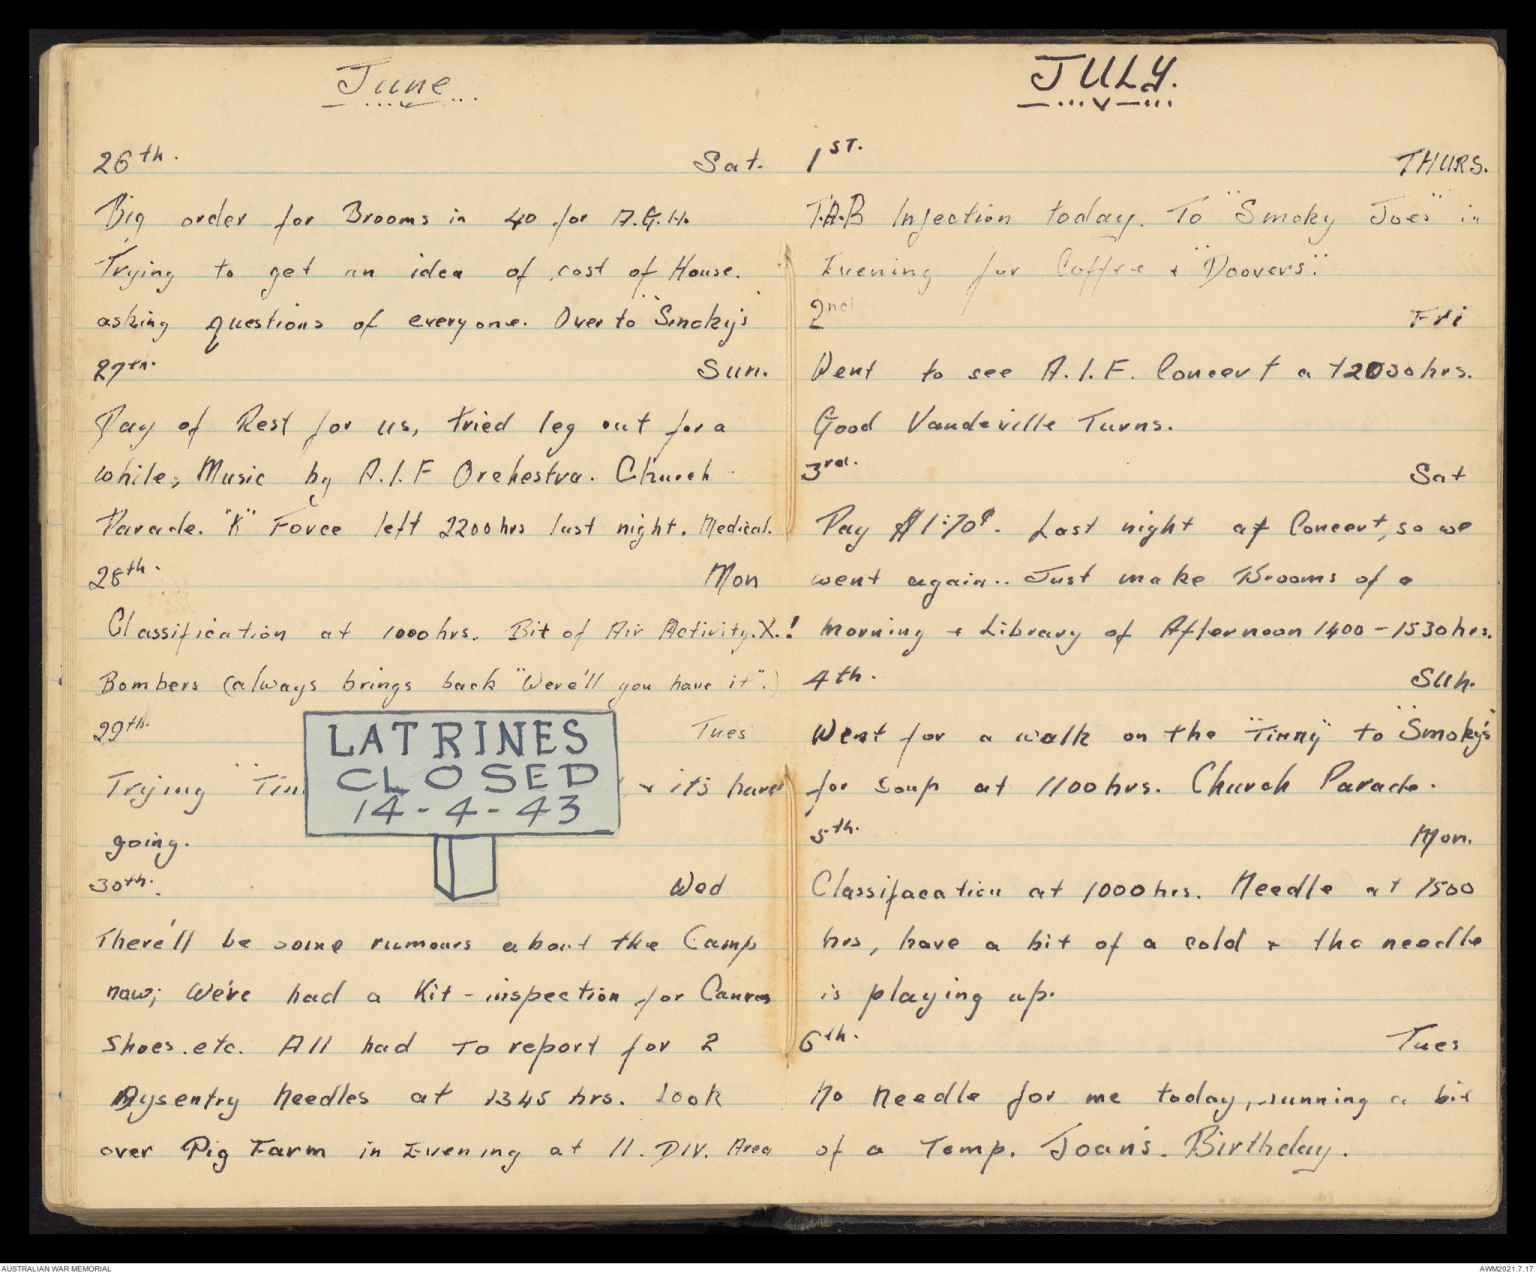 June
26th. Sat.
Big order for Brooms in 40 for A.G.H.
Trying to get an idea of cost of House.
asking questions of everyone. Over to "Smoky's"
27th. Sun.
Day of Rest for us, tried leg out for a
while, Music by A.I.F Orchestra. Church
Parade. "K" Force left 2200hrs last night. Medical.
28th. Mon
Classification at 1000hrs. Bit of Air Activity.X.!
Bombers (always brings back "Were'll you have it".)
29th. Tues
Trying "Tin + it's hard
going.
LATRINES
CLOSED
14-4-43
30th. Wed
There'll be some rumours about the Camp
now; We've had a Kit-inspection for Canvas
Shoes.etc. All had to report for 2
Dysentry Needles at 1345 hrs. Look
over Pig Farm in Evening at 11. DIV. Area
JULY.
1ST. THURS.
T.A.B Injection today. To "Smoky Joes" in
Evening for Coffee + "Doovers".
2nd Fri
Went to see A.I.F. Concert at 2030hrs.
Good Vaudeville Turns.
3rd. Sat
Pay $1:70¢. Last night of Concert, so we
went again.. Just make Brooms of a
morning + Library of Afternoon 1400-1530hrs.
4th. Sun.
Went for a walk on the "Tinny" to "Smoky's"
for Soup at 1100hrs. Church Parade.
5th. Mon.
Classifacation at 1000hrs. Needle at 1500
hrs, have a bit of a cold + the needle
is playing up.
6th. Tues
No Needle for me today, running a bit
of a Temp. Joan's. Birthday.
AUSTRALIAN WAR MEMORIAL
AWM2021.7.17